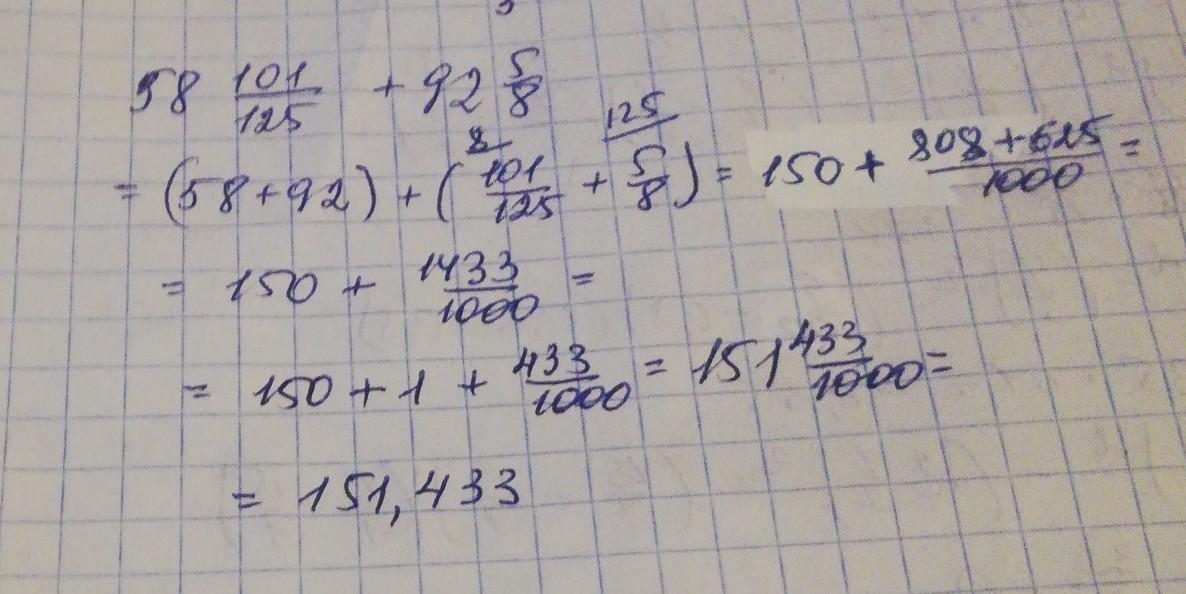 58 101/125 + 92 5/8
= (58+92) + (101/125 8 + 5/8 125) = 150 + 808+625/1000 =
= 150 + 1433/1000 =
= 150 + 1 + 433/1000 = 151 433/1000 =
= 151,433